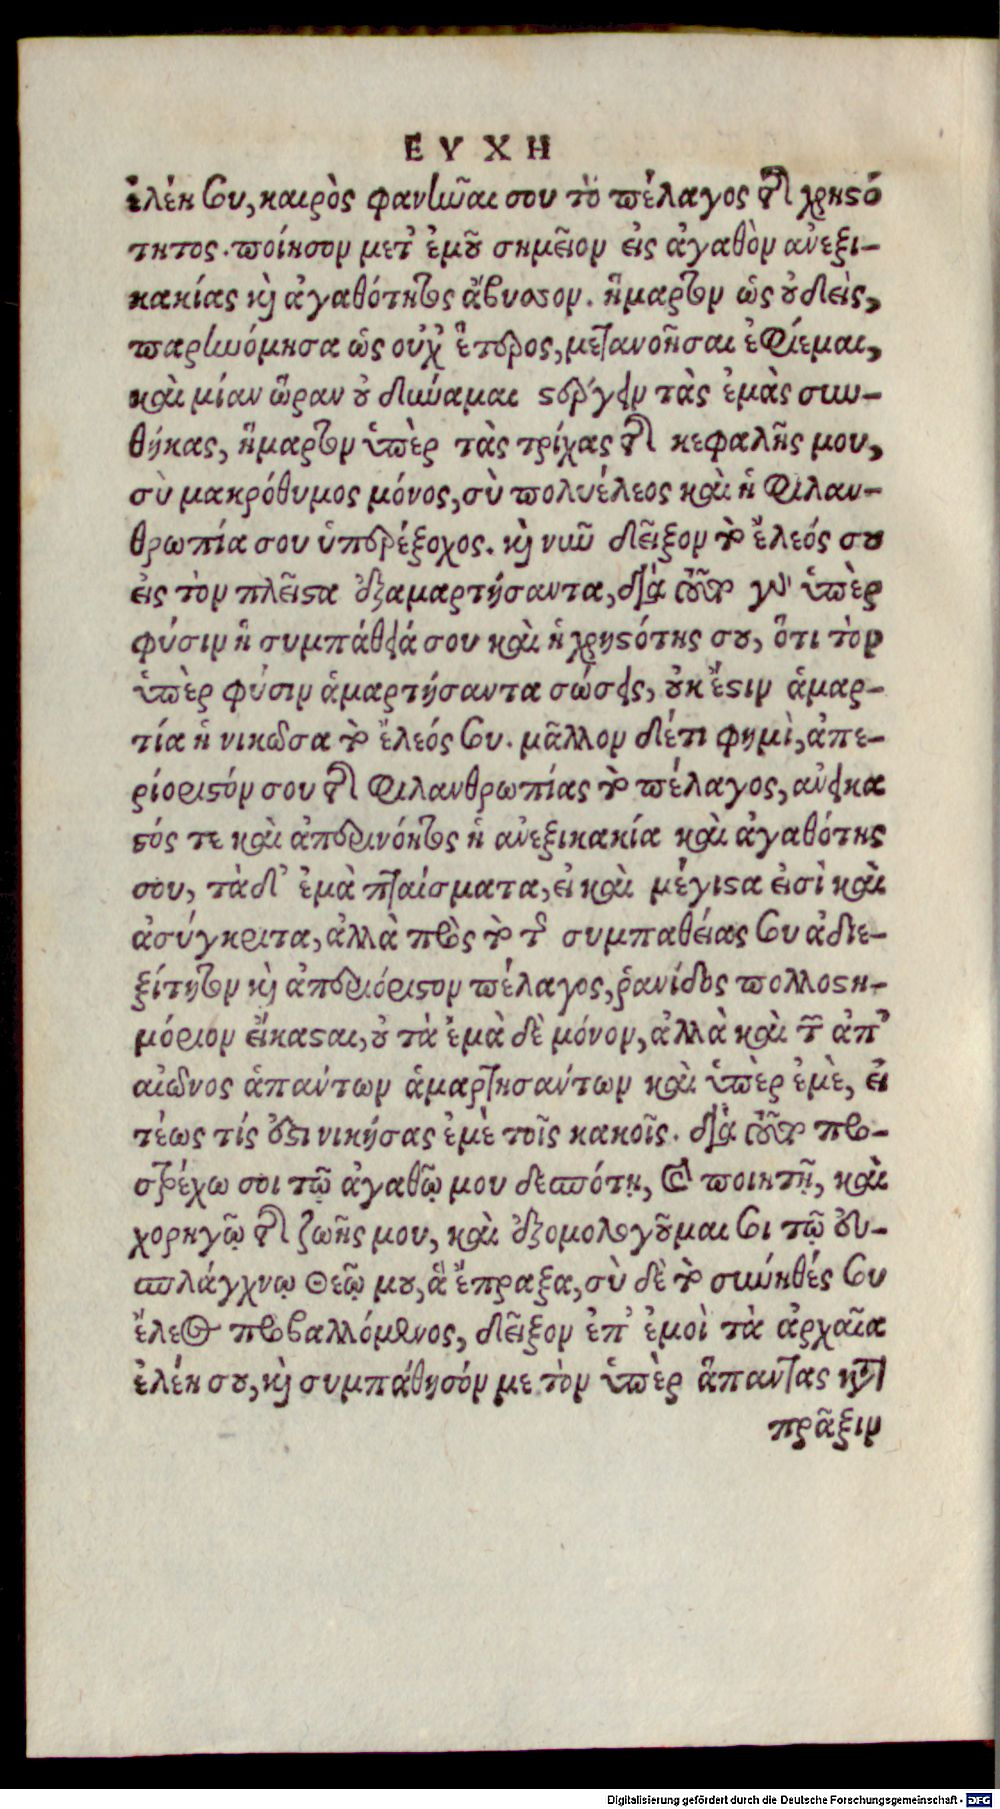 ΕΥΧΗ
ἐλέη σου, καιρὸς φανῆναι σου τὸ πέλαγος τῆς χρηστό
τητος. ποίησον μετ᾽ ἐμοῦ σημεῖον εἰς ἀγαθὸν ἀνεξι-
κακίας καὶ ἀγαθότητος ἄβυσσον. ἥμαρτον ὡς οὐδεὶς,
παρηνόμησα ὡς οὐχ ἕτερος, μετανοῆσαι ἐφίεμαι,
καὶ μίαν ὥραν οὐ δύναμαι στέργειν τὰς ἐμὰς συν-
θήκας, ἥμαρτον ὑπὲρ τὰς τρίχας τῆς κεφαλῆς μου,
σὺ μακρόθυμος μόνος, σὺ πολυέλεος καὶ ἡ φιλαν-
θρωπία σου ὑπερέξοχος. καὶ νῦν δεῖξον τὸ ἔλεός σου
εἰς τὸν πλεῖστα ἐξαμαρτήσαντα, διὰ τοῦτο γὰρ ὑπὲρ
φύσιν ἡ συμπάθειά σου καὶ ἡ χρηστότης σου, ὅτι τὸν
ὑπὲρ φύσιν ἁμαρτήσαντα σώσεις, οὐκ ἔστιν ἁμαρ-
τία ἡ νικῶσα τὸ ἔλεός σου. μᾶλλον δέ τι φημὶ, ἀπε-
ριόριστόν σου τῆς φιλανθρωπίας τὸ πέλαγος, ἀνείκα
στός τε καὶ ἀπερινόητος ἡ ἀνεξικακία καὶ ἀγαθότης
σου, τὰ δ᾽ ἐμὰ πταίσματα, εἰ καὶ μέγιστα εἰσὶ καὶ
ἀσύγκριτα, ἀλλὰ πρὸς τὸ τῆς συμπαθείας σου ἀδιε-
ξίτητον καὶ ἀπεριόριστον πέλαγος, ῥανίδος πολλοστη-
μόριον εἴκασται, οὐ τὰ ἐμὰ δὲ μόνον, ἀλλὰ καὶ τῶν ἀπ᾽
αἰῶνος ἁπάντων ἁμαρτησάντων καὶ ὑπὲρ ἐμὲ, εἰ
τέως τίς ἐστι νικήσας ἐμὲ τοῖς κακοῖς. διὰ τοῦτο προ-
στρέχω σοι τῷ ἀγαθῷ μου δεσπότῃ, καὶ ποιητῇ, καὶ
χορηγῷ τῆς ζωῆς μου, καὶ ἐξομολογοῦμαι σοι τῷ εὐ-
σπλάγχνῳ Θεῷ μου, ἃ ἔπραξα, σὺ δὲ τὸ σύνηθές σου
ἔλεος προβαλλόμενος, δεῖξον ἐπ᾽ ἐμοὶ τὰ ἀρχαῖα
ἐλέη σου, καὶ συμπάθησόν με τὸν ὑπὲρ ἅπαντας κατὰ
πρᾶξιν
Digitalisierung gefördert durch die Deutsche Forschungsgemeinschaft - DFG